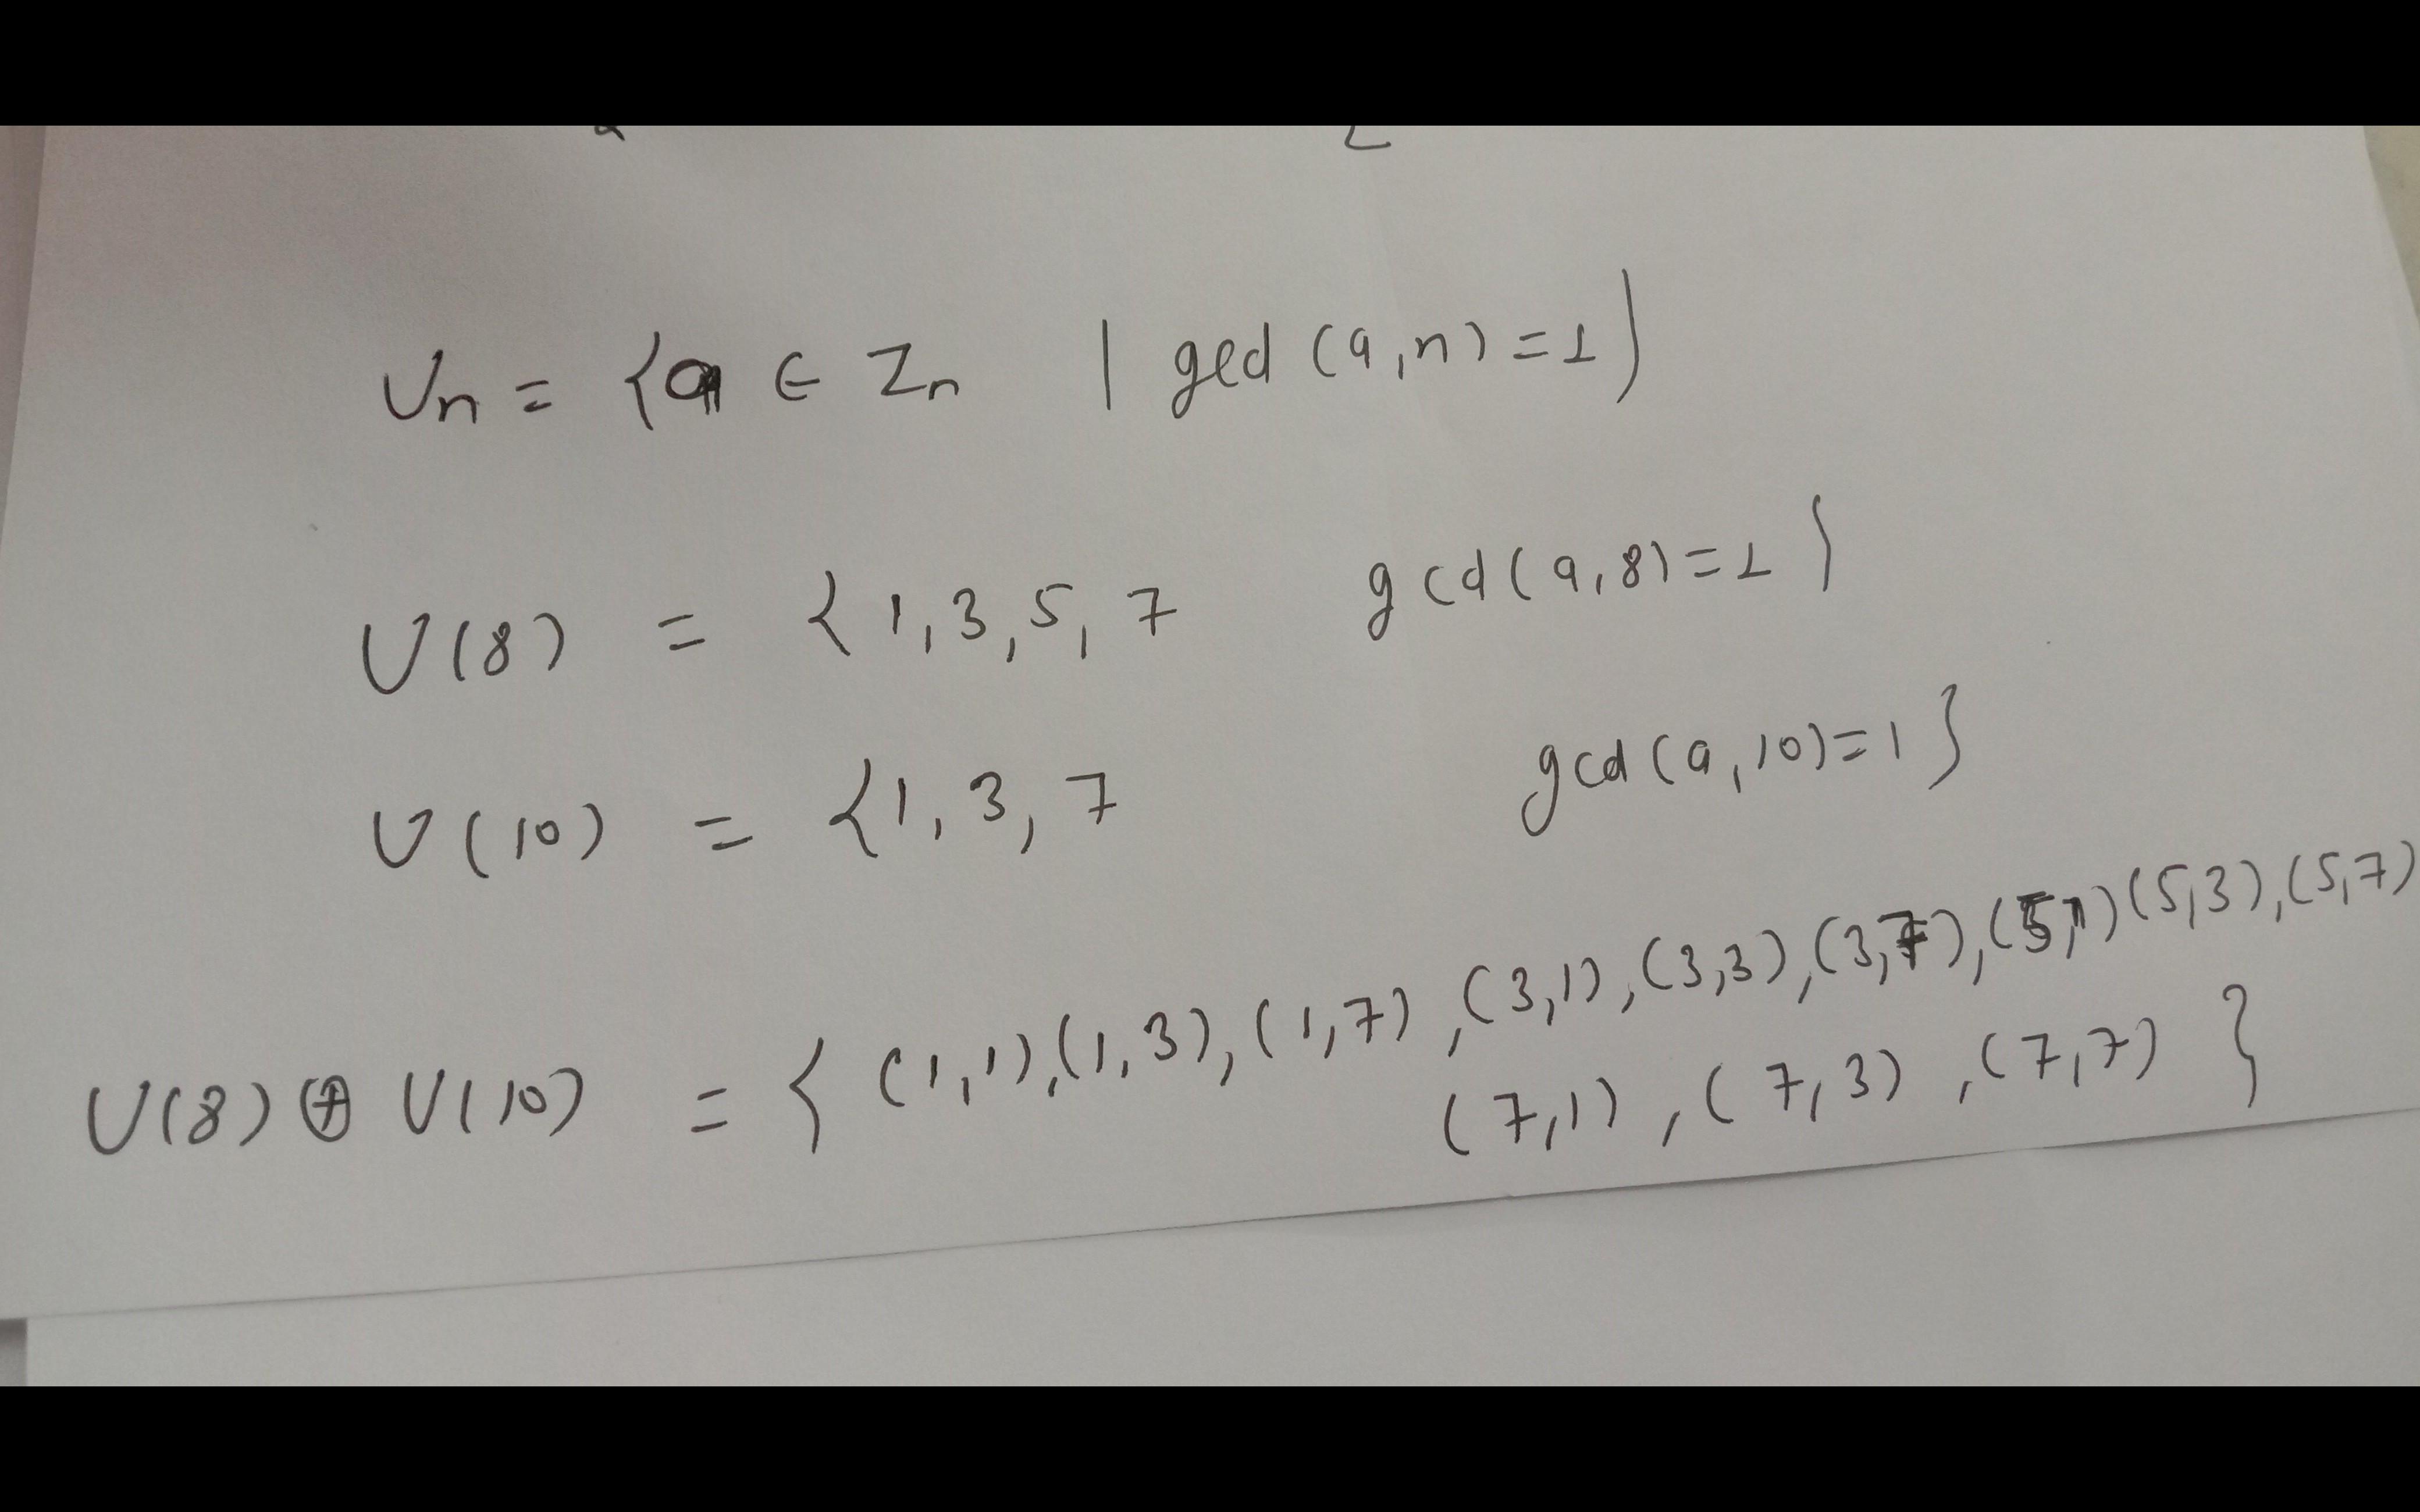 Un = {a ∈ Zn | gcd (a,n) = 1}
U(8) = {1,3,5,7 gcd(a,8)=1}
U(10) = {1,3,7 gcd(a,10)=1}
U(8) ⊕ U(10) = { (1,1),(1,3),(1,7),(3,1),(3,3),(3,7),(5,1)(5,3),(5,7)
(7,1),(7,3),(7,7) }